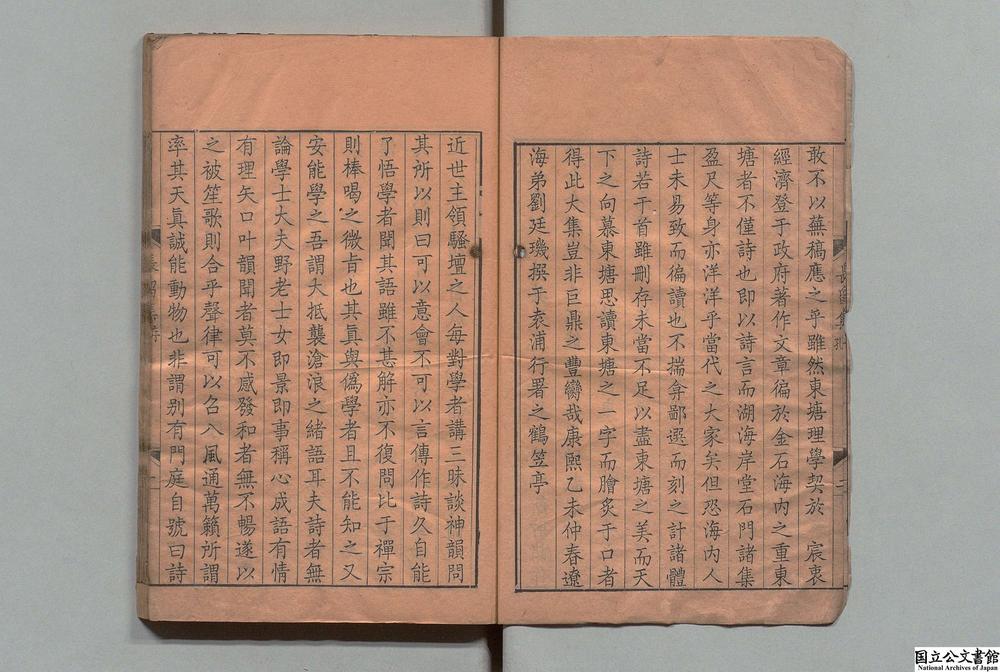 敢不以蕪稿應之乎雖然東塘理學契於　宸衷
經濟登于政府著作文章徧於金石海内之重東
塘者不僅詩也即以詩言而湖海岸堂石門諸集
盈尺等身亦洋洋乎當代之大家矣但恐海内人
士未易致而徧讀也不揣弇鄙選而刻之計諸體
詩若干首雖刪存未當不足以盡東塘之美而天
下之向慕東塘思讀東塘之一字而膾炙于口者
得此大集豈非巨鼎之豐臠哉康熙乙未仲春遼
海弟劉廷璣撰于袁浦行署之鶴笠亭
近世主領騷壇之人每對學者講三昧談神韻問
其所以則曰可以意會不可以言傳作詩久自能
了悟學者聞其語雖不甚解亦不復問比于禪宗
則棒喝之微旨也其真與僞學者且不能知之又
安能學之吾謂大抵襲滄浪之緒語耳夫詩者無
論學士大夫野老士女即景即事稱心成語有情
有理矢口叶韻聞者莫不感發和者無不暢遂以
之被笙歌則合乎聲律可以召八風通萬籟所謂
率其天眞誠能動物也非謂别有門庭自號曰詩
国立公文書館
National Archives of Japan